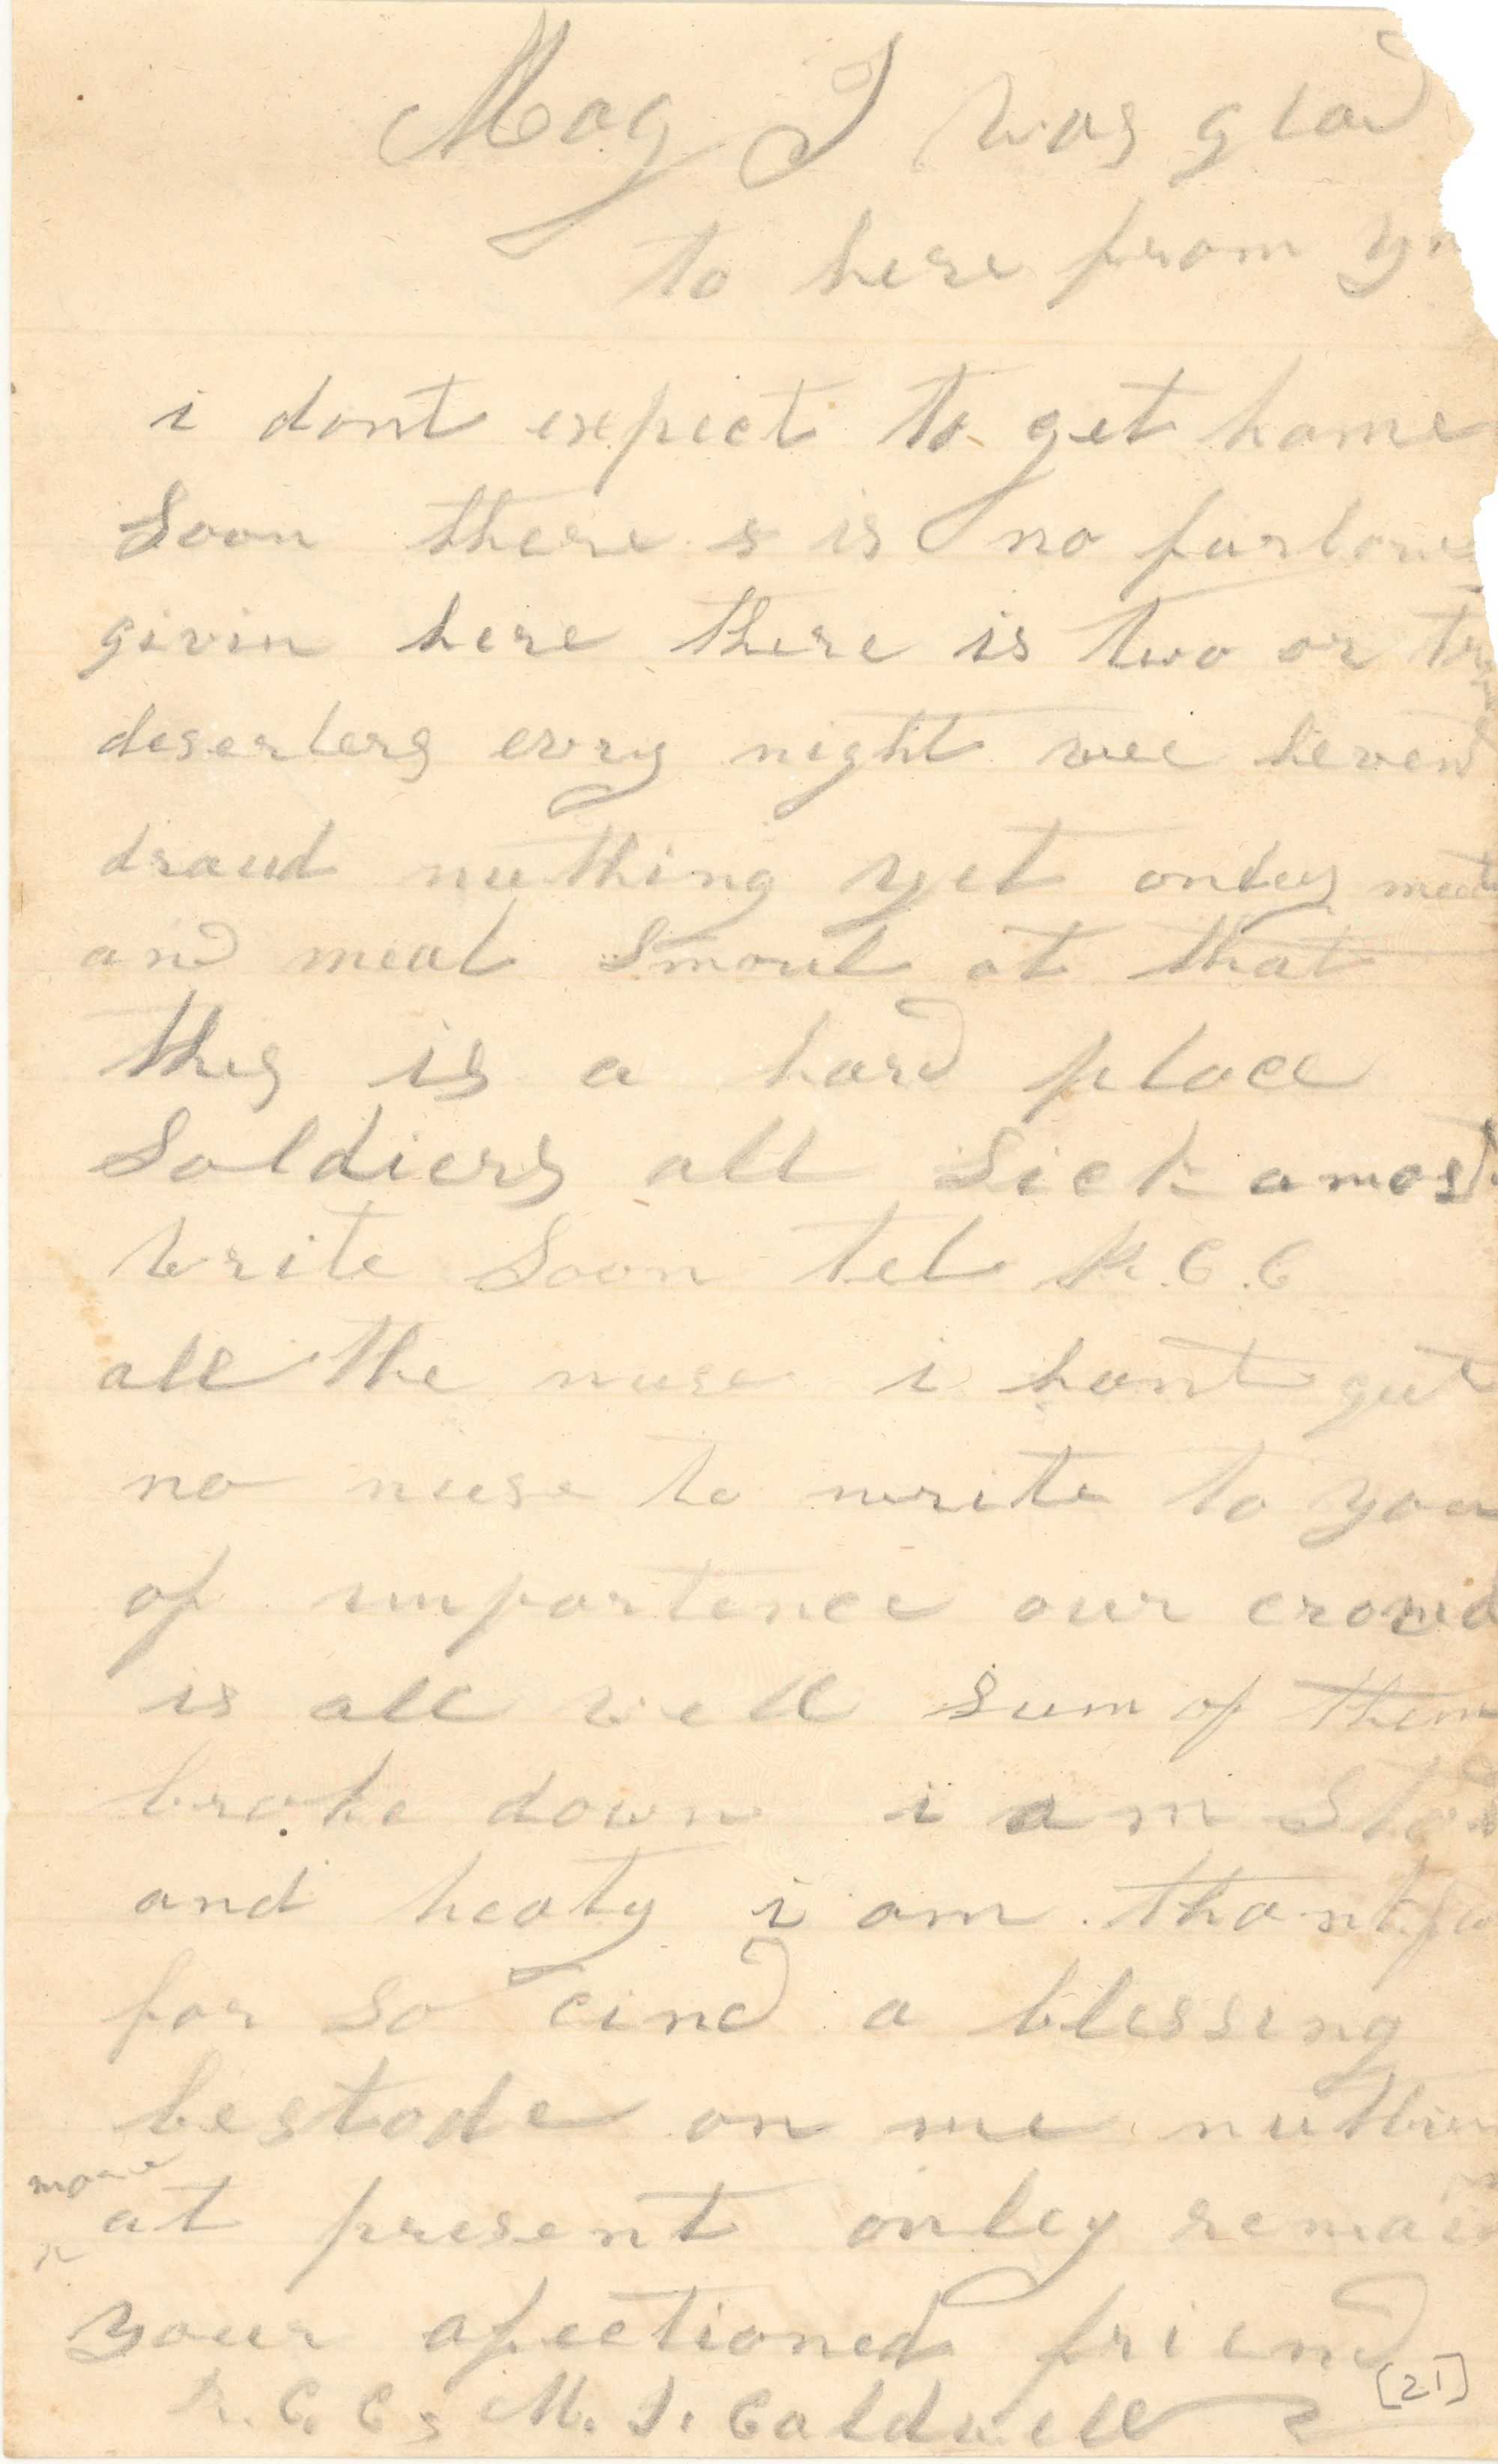 Mag I was glad
to here from yo
i dont expect to get home
Soon there s is no furlowe
givin here there is two or
deserters evry night wee heven
draud nuthing yet onley meet
and meal Smoul at that
this is a hard place
Soldiers all Sick amost
write Soon tel R.C.C
all the nuse i hant got
no nuse to write to you
of importence our crowd
is all well sum of them
broke down i am
and heaty i am thankfu
for so cind a blessing
bestode on me nuthin
more at present onley remain
your afectioned friend
R. C. C, M. I. Caldwell
[21]